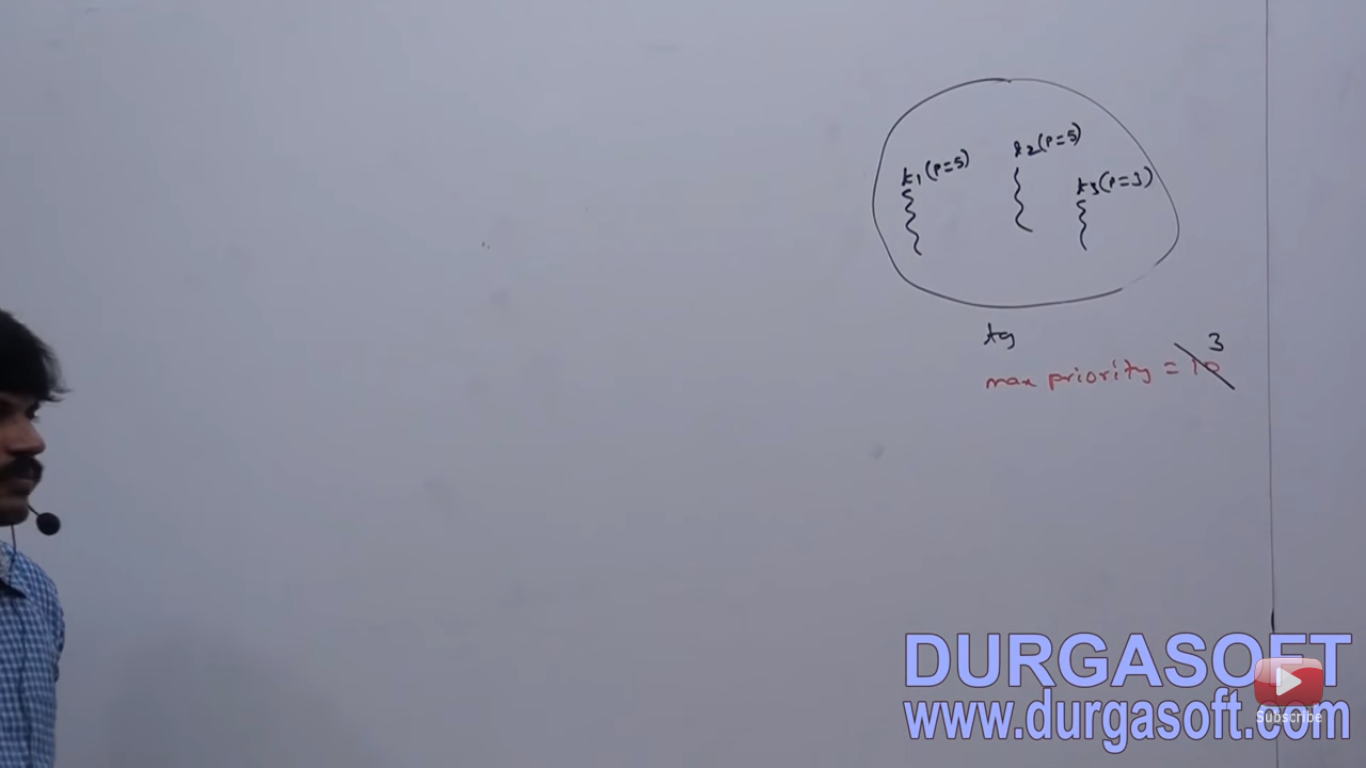 t1(P=5)
t2(P=5)
t3(P=3)
tg
3
max priority = 10
DURGASOFT
www.durgasoft.com
Subscribe